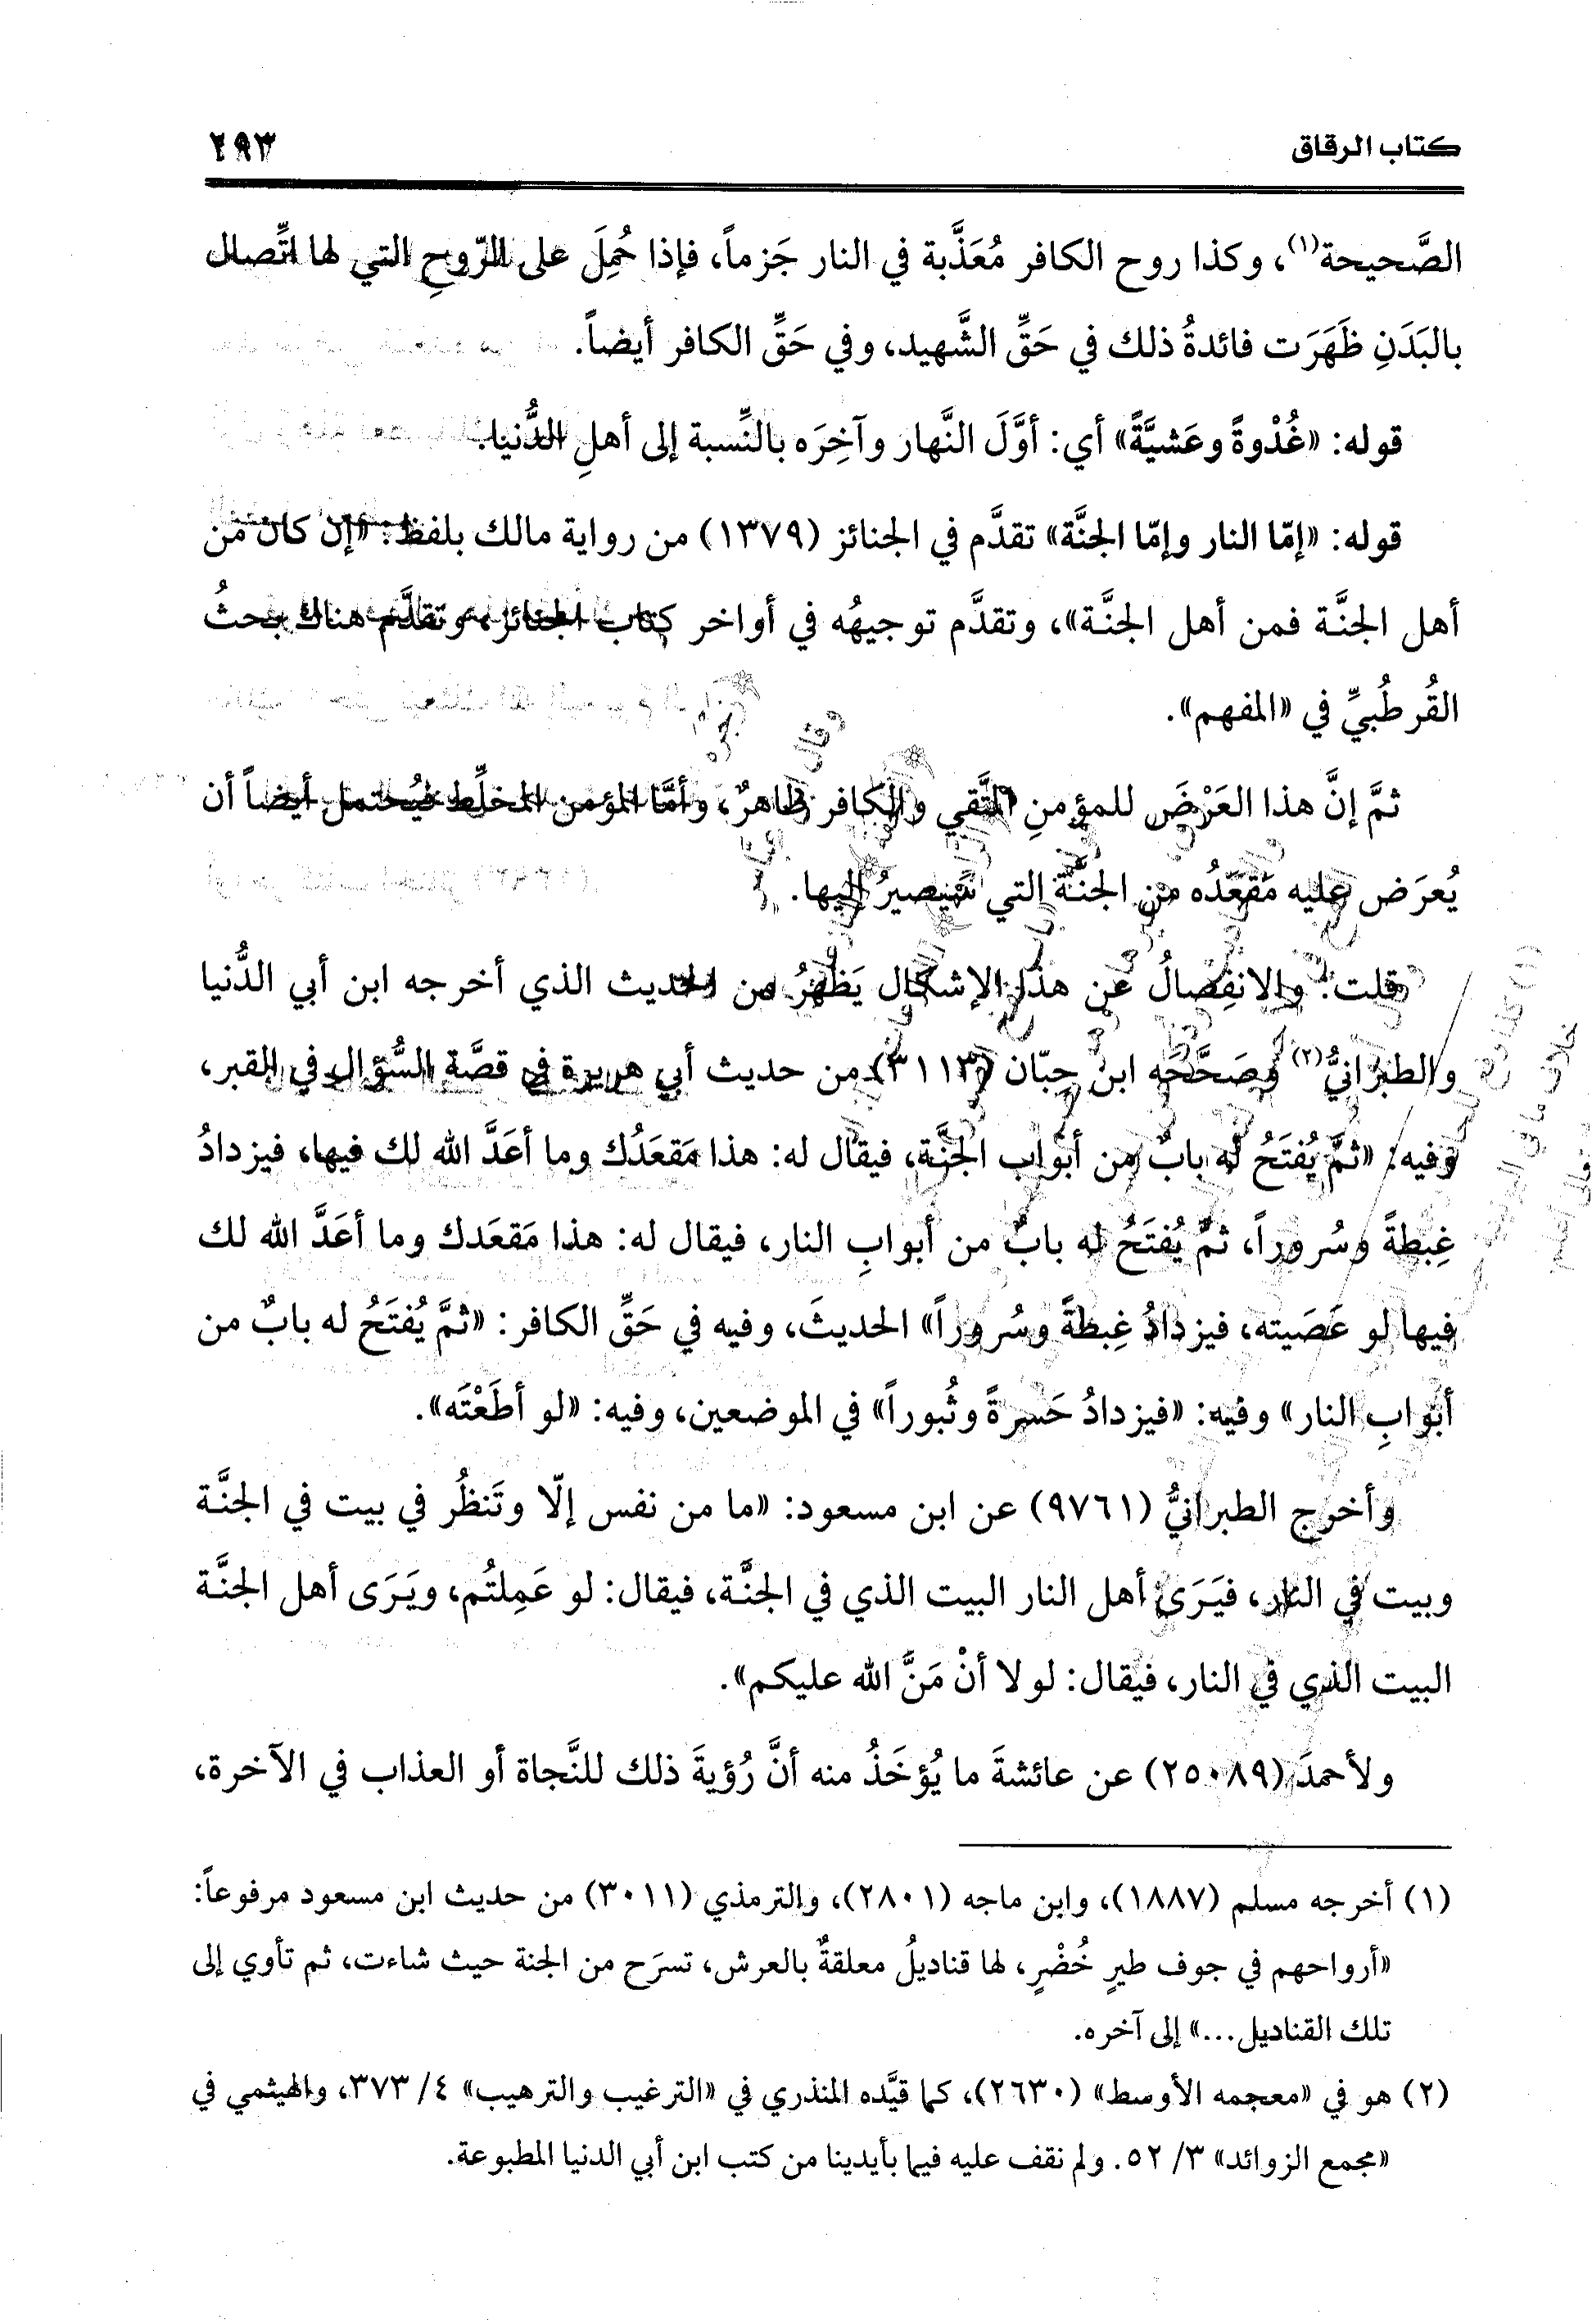 كتاب الرقاق ٢٩٣
الصَّحيحة(١)، وكذا روح الكافر مُعَذَّبة في النار جَزماً، فإذا حُمِلَ على الرّوحِ التي لها اتِّصال
بالبَدَنِ ظَهَرَت فائدةُ ذلك في حَقِّ الشَّهيد، وفي حَقِّ الكافر أيضاً.
قوله: «غُدْوةً وعَشيَّةً» أي: أوَّلَ النَّهار وآخِرَه بالنِّسبة إلى أهلِ الدُّنيا.
قوله: «إمّا النار وإمّا الجنَّة» تقدَّم في الجنائز (١٣٧٩) من رواية مالك بلفظ: «إن كان من
أهل الجنَّة فمن أهل الجنَّة»، وتقدَّم توجيهُه في أواخر كتاب الجنائز، وتقدَّم هناك بحثُ
القُرطُبيِّ في «المفهم».
ثمَّ إنَّ هذا العَرْضَ للمؤمنِ التَّقي والكافر ظاهرٌ، وأمَّا المؤمن المخلِّط فيُحتمل أيضاً أن
يُعرَض عليه مَقعَدُه من الجنَّة التي سَيصيرُ إليها.
قلت: والانفِصالُ عن هذا الإشكال يَظهَرُ من الحديث الذي أخرجه ابن أبي الدُّنيا
والطبرانيُّ(٢) وصَحَّحَه ابنُ حِبّان (٣١١٣) من حديث أبي هريرة في قصَّة السُّؤال في القبر،
وفيه: «ثمَّ يُفتَحُ له بابٌ من أبواب الجنَّة، فيقال له: هذا مَقعَدُك وما أعَدَّ الله لك فيها، فيزدادُ
غِبطةً وسُروراً، ثمَّ يُفتَحُ له بابٌ من أبوابِ النار، فيقال له: هذا مَقعَدك وما أعَدَّ الله لك
فيها لو عَصَيته، فيزدادُ غِبطةً وسُروراً» الحديثَ، وفيه في حَقِّ الكافر: «ثمَّ يُفتَحُ له بابٌ من
أبوابِ النار» وفيه: «فيزدادُ حَسرةً وثُبوراً» في الموضعين، وفيه: «لو أطَعْتَه».
وأخرج الطبرانيُّ (٩٧٦١) عن ابن مسعود: «ما من نفس إلّا وتَنظُر في بيت في الجنَّة
وبيت في النار، فيَرَى أهل النار البيت الذي في الجنَّة، فيقال: لو عَمِلتُم، ويَرَى أهل الجنَّة
البيت الذي في النار، فيقال: لولا أنْ مَنَّ الله عليكم».
ولأحمدَ (٢٥٠٨٩) عن عائشةَ ما يُؤخَذُ منه أنَّ رُؤيةَ ذلك للنَّجاة أو العذاب في الآخرة،
(١) أخرجه مسلم (١٨٨٧)، وابن ماجه (٢٨٠١)، والترمذي (٣٠١١) من حديث ابن مسعود مرفوعاً:
«أرواحهم في جوف طيرٍ خُضْرٍ، لها قناديلُ معلقةٌ بالعرش، تسرَح من الجنة حيث شاءت، ثم تأوي إلى
تلك القناديل...» إلى آخره.
(٢) هو في «معجمه الأوسط» (٢٦٣٠)، كما قيَّده المنذري في «الترغيب والترهيب» ٤/ ٣٧٣، والهيثمي في
«مجمع الزوائد» ٣/ ٥٢. ولم نقف عليه فيما بأيدينا من كتب ابن أبي الدنيا المطبوعة.